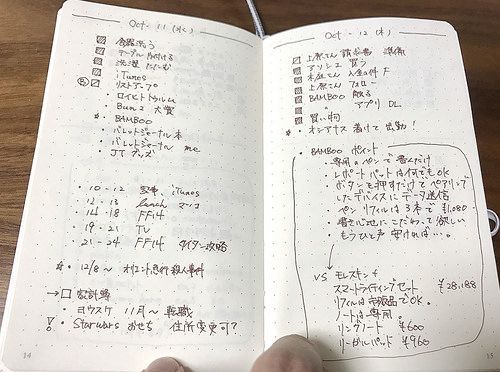 Oct - 11 (水)
食器洗う
テーブル片付ける
洗濯 たたむ
iTunes
リストアップ
・ロイヒトトゥルム
・Bun2 大賞
* BAMBOO
・バレットジャーナル本
・バレットジャーナル me
・JTグッズ
・10 - 12 記事, iTunes
・12 - 13 lunch
・14 - 18 FF14
・19 - 21 TV
・21 - 24 FF14 タイタン攻略
*・12/8〜 オリエント急行殺人事件
→ □ 家計簿
・ヨウスケ 11月〜 転職
! ・Starwars おせち 住所変更可?
14
Oct - 12 (木)
上原さん 請求書 準備
アリシエ 買う
本庄さん 入金の件 F
上原さん フォロー
BAMBOO 触る
アプリ DL
買い物
* ・オシアナス 着けて出勤!
BAMBOO ポイント
・専用のペンで書くだけ
・レポートパットは何でもOK
・ボタンを押すだけで ペアリング
したデバイスにデータ送信
・ペン リフィルは 3本で ¥1,080
・書き心地に こだわって 欲しい
・もうひと声 安ければ・・・。
VS モレスキン
スマートライティングセット ¥28,188
リフィルは市販品でOK。
ノートは専用。
リングノート ¥600
リーガルパッド ¥960
15